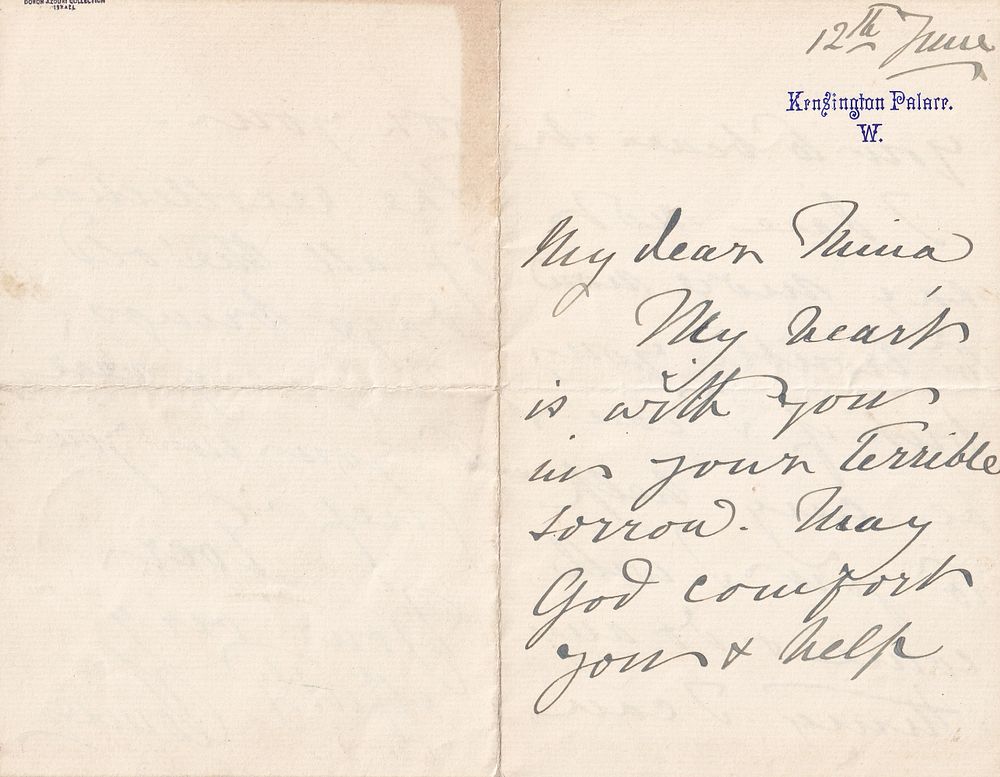 DORON AZOURY COLLECTION
12th June
Kensington Palace.
W.
My dear Mina
My heart
is with you
in your terrible
sorrow. May
God comfort
you & help